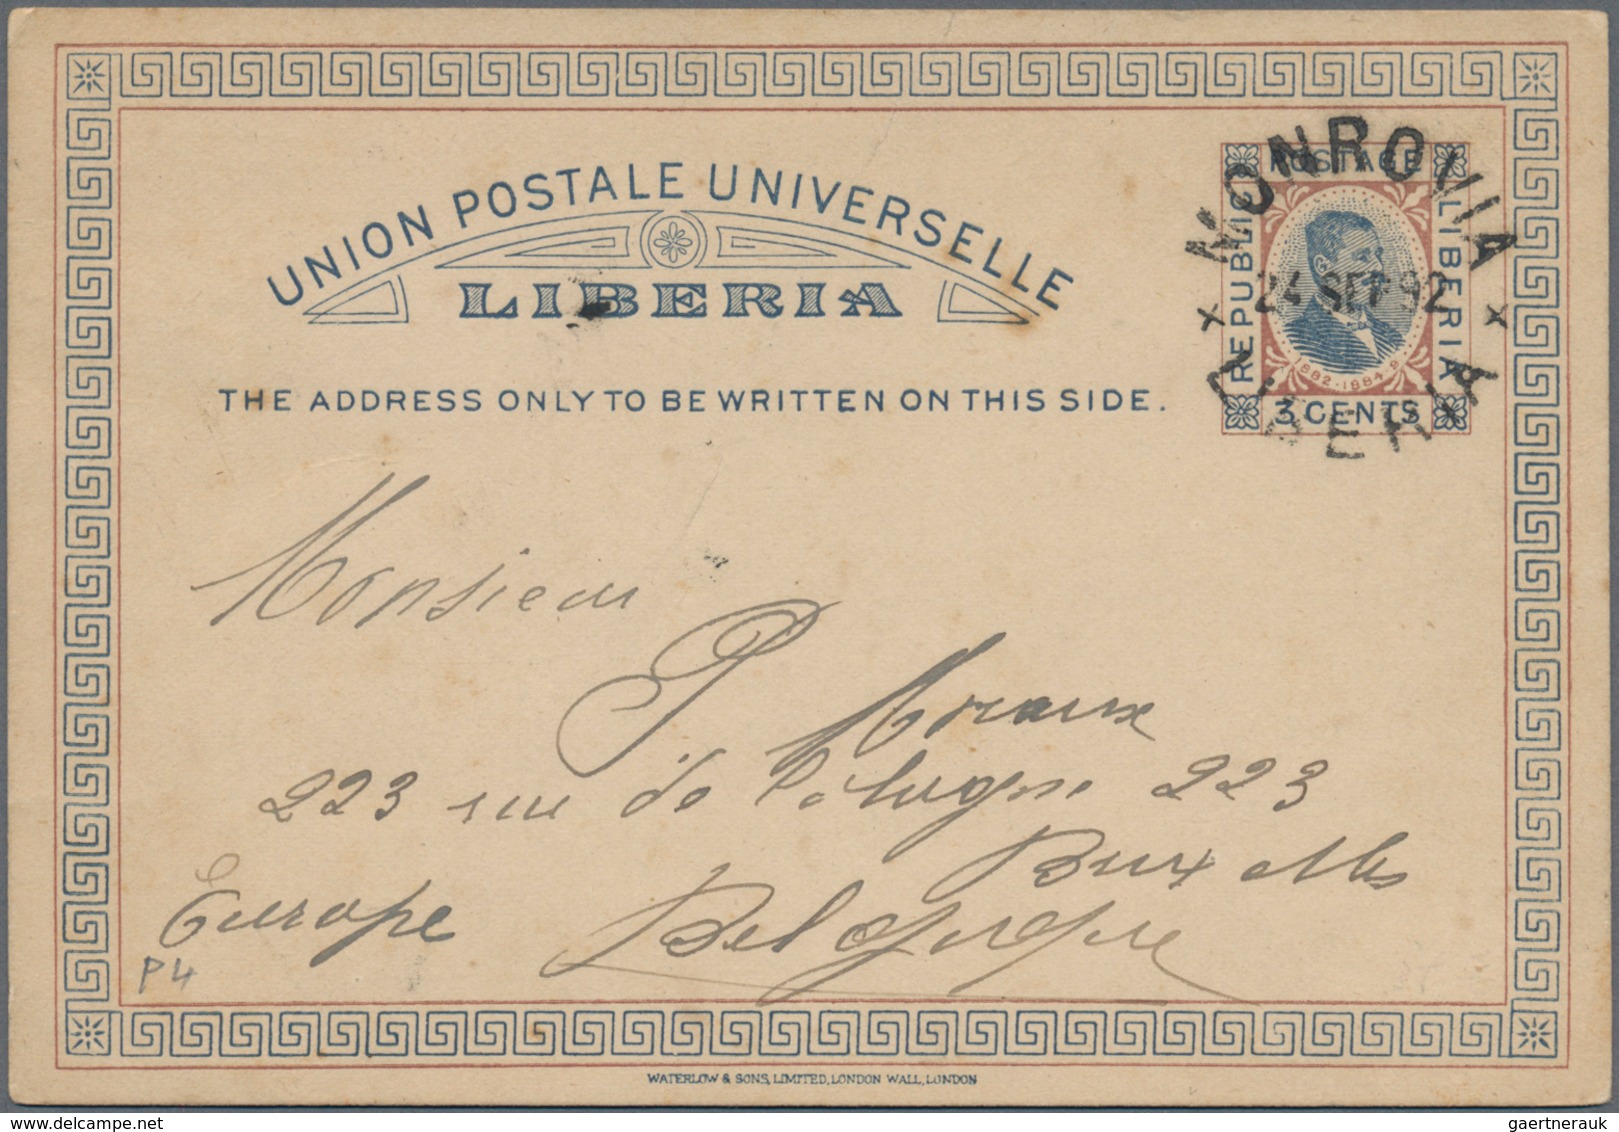 UNION POSTALE UNIVERSELLE
LIBERIA
THE ADDRESS ONLY TO BE WRITTEN ON THIS SIDE.
POSTAGE
REPUBLIC
LIBERIA
1882 · 1884
3 CENTS
MONROVIA
24 SEP 92
LIBERIA
Monsieur
P
223 rue de 223
Bruxelles
Europe Belgique
P4
WATERLOW & SONS, LIMITED, LONDON WALL, LONDON
gaertnerauk @ delcampe.net